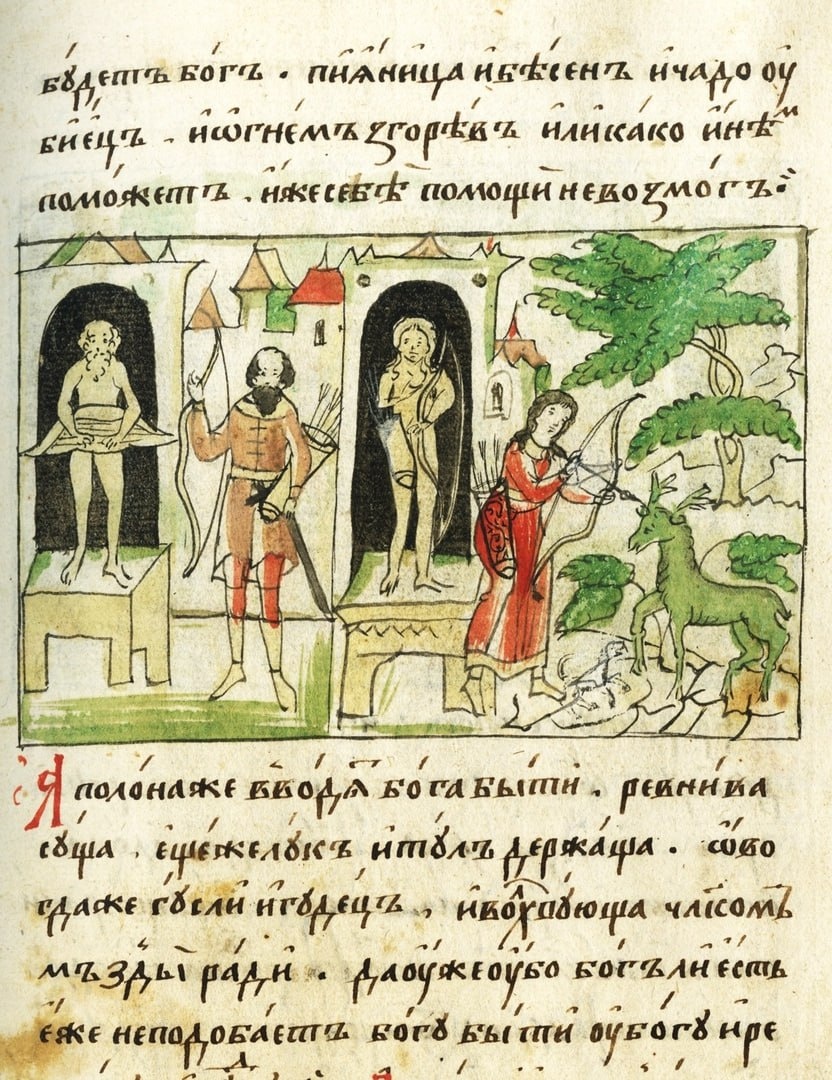 бу́детъ бо́гъ . пїѧ́ница и҆бѣ́сенъ и҆ча́до оу҆
бїе́цъ . и҆ѡ҆гне́мъ ꙁгорѣ́въ и҆лика́ко и҆нѣ́м
помо́жетъ . и҆жесебѣ̀ помощи невоꙁмо́гъ :
Я҆поло́наже вво́дѧ бо́га бы́ти . ревни́ва
су́ща . е҆ще́желу́къ и҆ту́лъ держа́ща . ѡ҆во
гда́же гу́сли и҆гуде́цъ . и҆волхву́юща чл҃ком
мъзды̀ ра́ди . даѹ҆жеѹ҆бо бо́гъли е҆сть
е҆́же неподоба́етъ бо́гу бы́ти ѹ҆бо́гу и҆ре